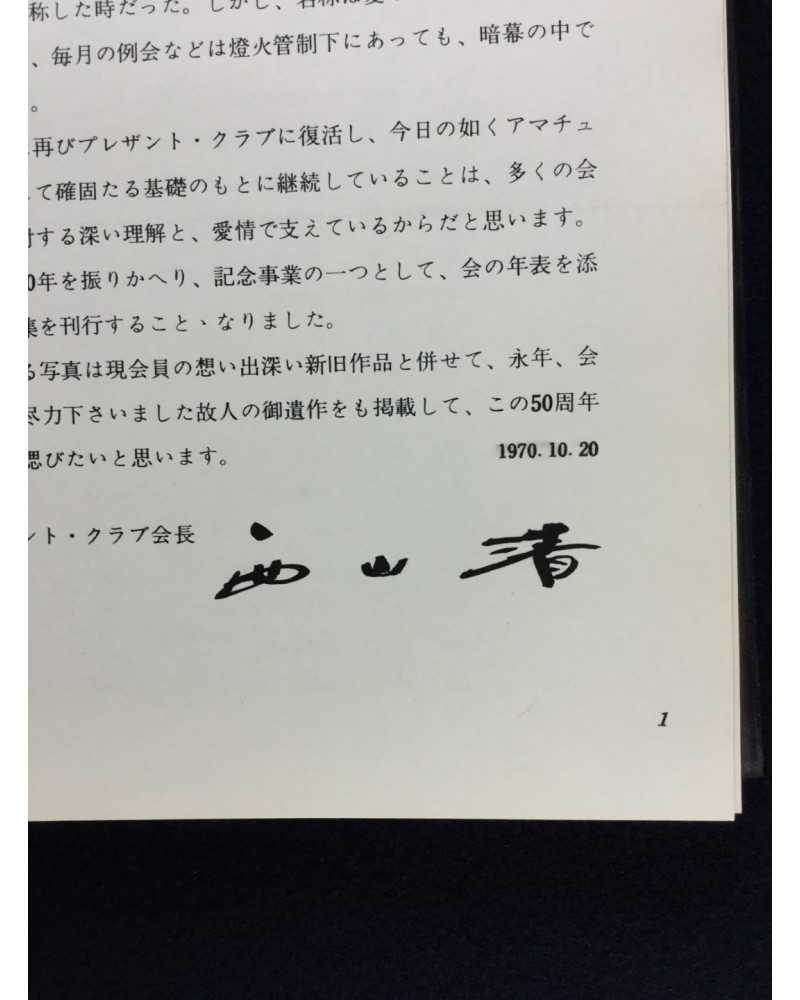 称した時だった。しかし、名称は変
、毎月の例会などは燈火管制下にあっても、暗幕の中で
。
再びプレザント・クラブに復活し、今日の如くアマチュ
て確固たる基礎のもとに継続していることは、多くの会
対する深い理解と、愛情で支えているからだと思います。
0年を振りかへり、記念事業の一つとして、会の年表を添
集を刊行することゝなりました。
る写真は現会員の想い出深い新旧作品と併せて、永年、会
尽力下さいました故人の御遺作をも掲載して、この50周年
偲びたいと思います。 1970. 10. 20
ント・クラブ会長 西山清
1